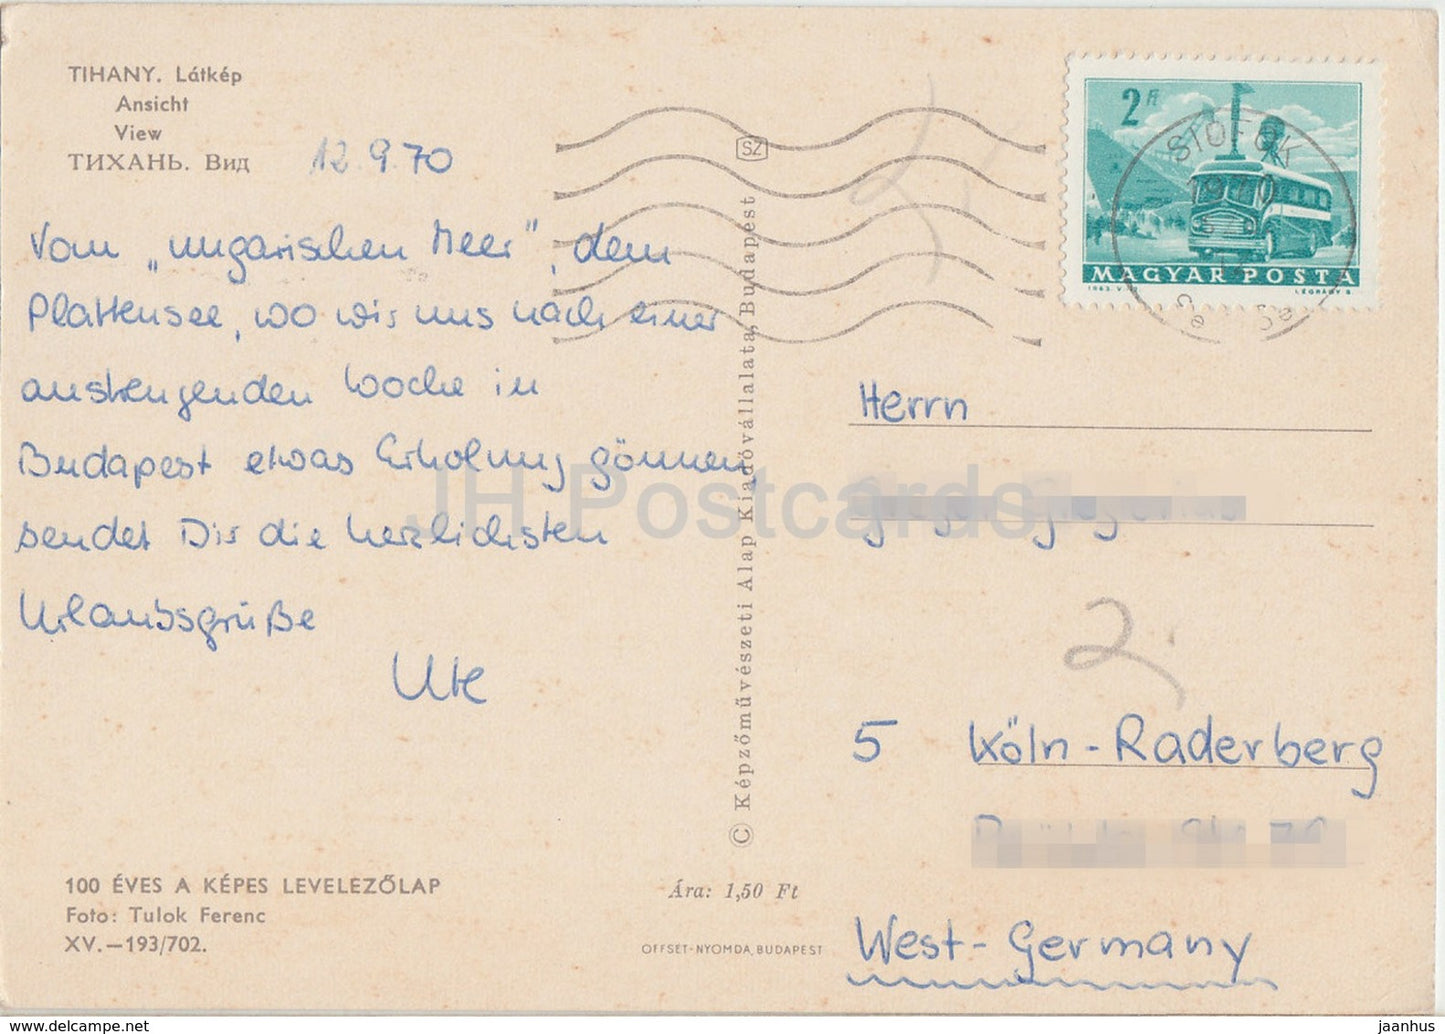 TIHANY. Látkép
Ansicht
View
ТИХАНЬ. Вид
12.9.70
Vom „ungarischen Meer", dem
Plattensee, wo wir uns nach einer
anstrengenden Woche in
Budapest etwas Erholung gönnen,
sendet Dir die herzlichsten
Urlaubsgrüße
Ute
100 ÉVES A KÉPES LEVELEZŐLAP
Foto: Tulok Ferenc
XV.—193/702.
SZ
© Képzőművészeti Alap Kiadóvállalata, Budapest
Ára: 1,50 Ft
OFFSET-NYOMDA, BUDAPEST
2 Ft
MAGYAR POSTA
LÉGRÁDY S.
SIÓFOK
Herrn
2.
5 Köln-Raderberg
West-Germany
JH Postcards
www.delcampe.net
jaanhus